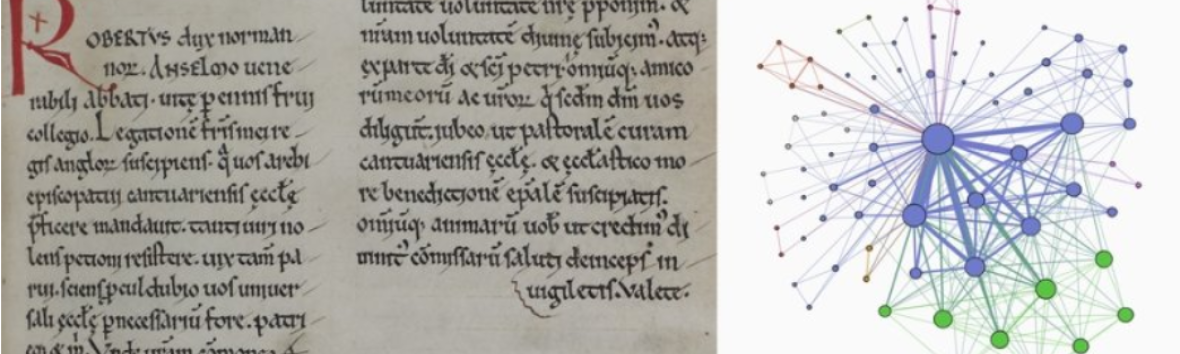 ROBERTVS dux norman
nor. ANSELMO uene
rabili abbati. uite pennis frui
collegio. Legationē fr̄is mei re
gis angloꝝ suscipiens. q̄ uos archi
episcopatū cantuariensis ęccłę
p̄ficere mandauit. tanti uiri no
lens petioni resistere. uix tam̄ pa
rui. sciens ꝑcul dubio uos uniuer
sali ęccłę ꝑnecessariū fore. patri
uoluntate
nr̄am uoluntatē diuinę subiem̄. atq;
ex parte dī & sc̄i petri omiūq; amico
rū meorū ac uroꝝ q̄ scdm dm̄ uos
diligūt. iubeo. ut pastoralē curam
cantuariensis ęccłę. & ęccłastico mo
re benedictionē ep̄alē suscipiatis.
omiūq; animarū uob ut credim̄ di
uinit᾽ cōmissarū saluti deinceps in
uigiletis. Valete.